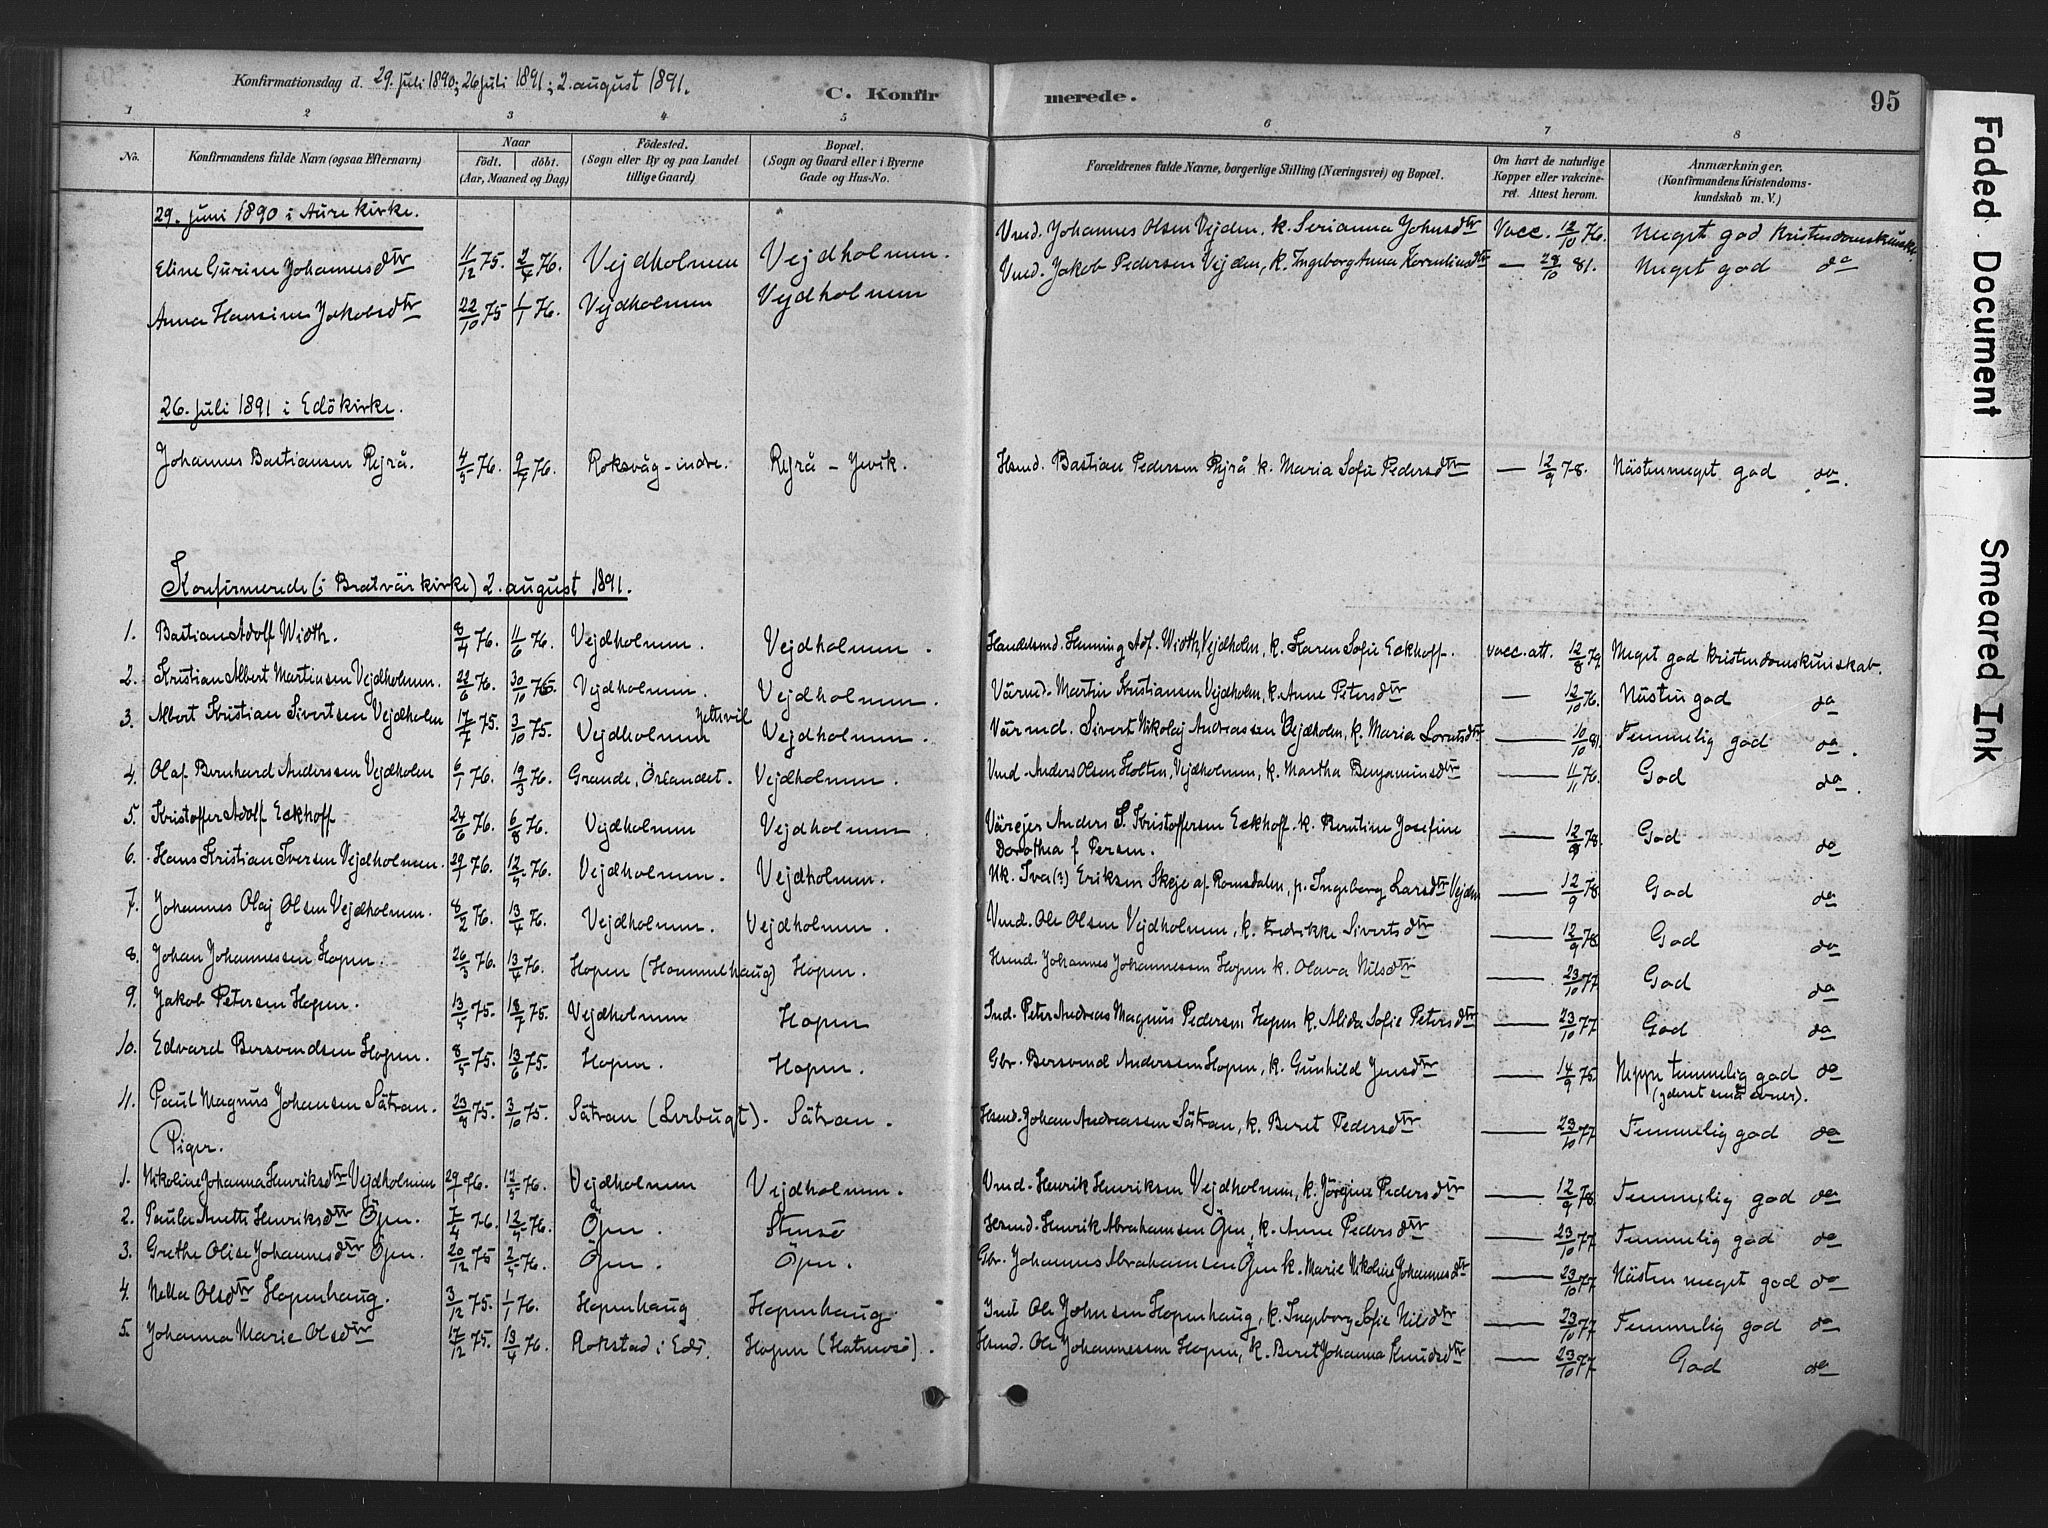 Konfirmationsdag d. 29. juli 1890; 26 juli 1891; 2. august 1891.
C. Konfirmerede.
95
1 2 3 4 5 6 7 8
No. Konfirmandens fulde Navn (ogsaa Efternavn) Naar födt. döbt. (Aar, Maaned og Dag) Födested. (Sogn eller By og paa Landet tillige Gaard) Bopæl. (Sogn og Gaard eller i Byerne Gade og Hus-No. Forældrenes fulde Navne, borgerlige Stilling (Næringsvei) og Bopæl. Om havt de naturlige Kopper eller vakcineret. Attest herom. Anmærkninger. (Konfirmandens Kristendomskundskab m. V.)
29. juni 1890 i Aure kirke.
Eline Gurine Johannesdtr 11/12 75. 2/4 76. Vejdholmen Vejdholmen. Vmd. Johannes Olsen Vejden, k. Serianna Johnsdtr Vacc. 12/10 76. Meget god kristendomskunskab
Anna Hansine Jakobsdtr 22/10 75 1/1 76. Vejdholmen Vejdholmen Vmd. Jakob Pedersen Vejden, k. Ingeborg Anna Korneliusdtr — 28/10 81. Meget god do
26. juli 1891 i Edö kirke.
Johannes Bastiansen Rejrå. 4/5 76. 9/7 76. Roksvåg-indre. Rejrå - Jevik. Hsmd. Bastian Pedersen Rejrå k. Maria Sofie Pedersdtr — 12/9 78. Nästen meget god do.
Konfirmerede (i Bratvär kirke) 2. august 1891.
1. Bastian Adolf Width. 8/4 76. 11/6 76. Vejdholmen. Vejdholmen. Handelsmd. Henning Adf. Width, Vejdholm, k. Karen Sofie Eckhoff. vacc. att. 12/8 79. Meget god kristendomskunskab.
2. Kristian Albert Martinsen Vejdholmen. 22/6 76. 30/10 76. Vejdholmen. Vejdholmen. Värmd. Martin Kristiansen Vejdholm, k. Anne Petersdtr — 12/10 76. Nästen god do
3. Albert Kristian Sivertsen Vejdholm 17/7 75. 3/10 75. Vejdholmen Vejdholmen. Värmd. Sivert Nikolaj Andreassen Vejdholm, k. Maria Lorntsdtr — 10/10 81. Temmelig god do.
4. Olaf Bernhard Anderssen Vejdholm 6/1 76. 19/3 76. Grande, Örlandet. Vejdholmen. Vmd. Anders Olsen Holten, Vejdholmen, k. Martha Benjaminsdtr — 1/11 76. God do.
5. Kristoffer Adolf Eckhoff 24/6 76. 6/8 76. Vejdholmen Vejdholmen Värejer Anders S. Kristoffersen Eckhoff. k. Berntine Josefine Dorothea f. Persen. — 12/9 78. God do
6. Hans Kristian Iversen Vejdholmen. 29/1 76. 12/5 76. Vejdholmen. Vejdholmen. Uk. Iva(?) Eriksen Skeje af Romsdalen, p. Ingeborg Larsdtr Vejden — 12/9 78 God do
7. Johannes Olaj Olsen Vejdholmen. 8/2 76. 13/4 76. Vejdholmen. Vejdholmen. Vmd. Ole Olsen Vejdholmen, k. Fredrikke Sivertsdtr — 12/9 78. God do
8. Johan Johannessen Hopen. 26/3 76. 13/4 76. Hopen (Hammelhaug) Hopen. Hsmd. Johannes Johannessen Hopen k. Olava Nilsdtr — 23/10 77 God do
9. Jakob Petersen Hopen. 13/5 75. 18/7 75. Vejdholmen Hopen Ind. Peter Andreas Magnus Pedersen Hopen k. Alida Sofie Petersdtr — 23/10 77 God do
10. Edvard Bersvendsen Hopen. 8/5 75. 13/6 75. Hopen. Hopen. Gbr. Bersvend Andersen Hopen, k. Gunhild Jensdtr — 14/9 75. Neppe temmelig god do
(yderst små evner).
11. Paul Magnus Johansen Sätran. 23/8 75. 3/10 75. Sätran (Lerbugt). Sätran. Hsmd. Johan Andreassen Sätran, k. Beret Pedersdtr — 23/10 77 Temmelig god do
Piger.
1. Nikoline Johanna Henriksdtr Vejdholmen 29/1 76. 12/5 76. Vejdholmen Vejdholmen. Vmd. Henrik Henriksen Vejdholmen, k. Jörgine Pedersdtr — 12/9 78 Temmelig god do
2. Paula Anette Henriksdtr Öjen. 7/4 76. 12/5 76. Öjen. Stensö Hsmd. Henrik Abrahamsen Öjen, k. Anne Pedersdtr — 23/10 77 Temmelig god do
3. Grethe Olise Johannesdtr Öjen. 20/12 75 2/5 76. Öjen. Öjen. Gbr. Johannes Abrahamsen Öjen k. Marie Nikoline Johannesdtr — 23/10 77 Nästen meget god do
4. Nella Olsdtr Hopenhaug. 3/12 75. 1/1 76. Hopenhaug Hopenhaug. Ind. Ole Johnsen Hopenhaug, k. Ingeborg Sofie Nilsdtr — 23/10 77 Temmelig god do
5. Johanna Marie Olsdtr 17/12 75. 13/4 76. Rokstad i Edö. Hopen (Hatmosö). Hsmd. Ole Johannessen Hopen, k. Beret Johanna Knudsdtr — 23/10 77 God do
Faded Document
Smeared Ink